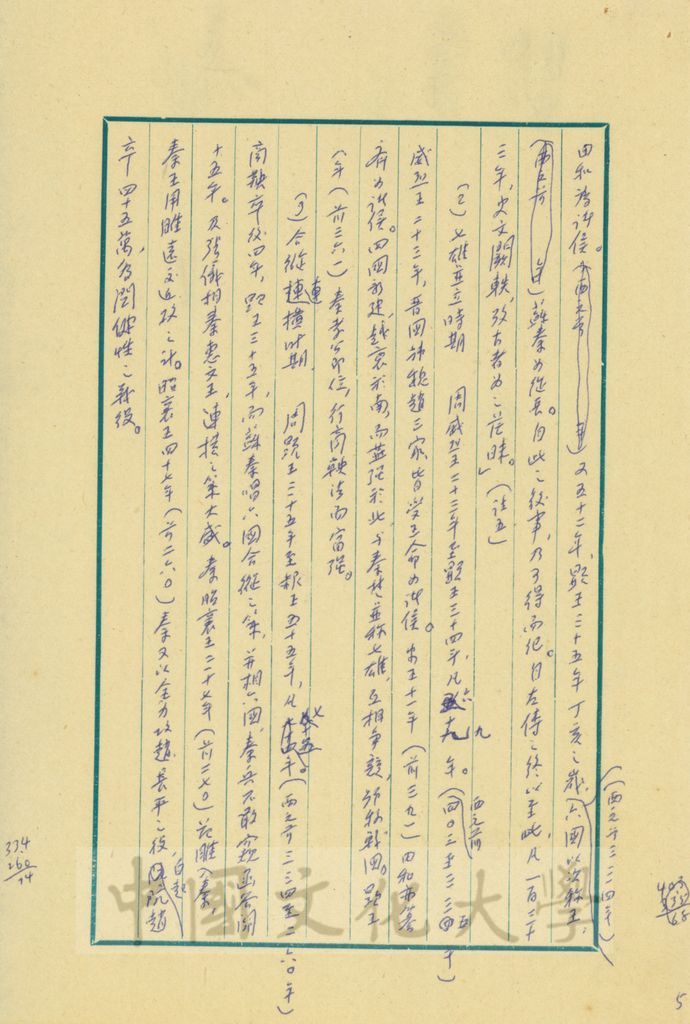 田和為諸侯。又五十二年，顯王三十五年丁亥之歲，六國以次稱王，（西元前三三四年）
蘇秦為從長。自此之後事，乃可得而紀。自左傳之終以至此，凡一百三十
三年，史文闕軼，攷古者為之茫昧。」（註五）
（2）七雄並立時期　周威烈王二十三年至顯王三十四年，凡六九年。（西元前四〇三至三三五年）
威烈王二十三年，晉國韓魏趙三家，皆受王命為諸侯。安王十一年（前三九一）田和亦篡
齊為諸侯。四國新建，越衰於南，而燕強於北，與秦楚並稱七雄，互相爭競，號稱戰國。顯王
八年（前三六一）秦孝公即位，行商鞅法而富强。
（3）合縱連橫時期　周顯王三十五年至赧王五十五年，凡七十五年。（西元前三三四至二六〇年）
商鞅卒後四年，顯王三十五年，而蘇秦唱六國合縱之策，并相六國，秦兵不敢窺函谷關
十五年。及張儀相秦惠文王，連橫之策大盛。秦昭襄王三十七年（前二七〇）范雎入秦，
秦王用雎遠交近攻之計。昭襄王四十七年（前二六〇）秦又以全力攻趙，長平之役，白起阬趙
卒四十五萬，為關鍵性之戰役。
334
260
74
5
中國文化大學